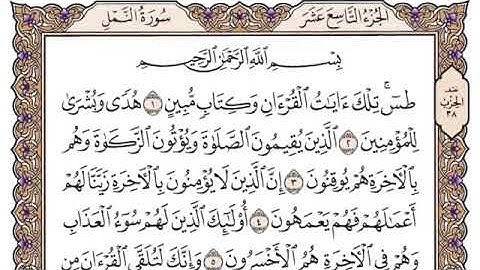 سُورَةُ النَّمْلِ الجُزْءُ التَّاسِعَ عَشَرَ
بِسْمِ ٱللَّهِ ٱلرَّحْمَٰنِ ٱلرَّحِيمِ
طسٓ ۚ تِلْكَ ءَايَٰتُ ٱلْقُرْءَانِ وَكِتَابٍ مُّبِينٍ ١ هُدًى وَبُشْرَىٰ
لِلْمُؤْمِنِينَ ٢ ٱلَّذِينَ يُقِيمُونَ ٱلصَّلَوٰةَ وَيُؤْتُونَ ٱلزَّكَوٰةَ وَهُم
بِٱلْءَاخِرَةِ هُمْ يُوقِنُونَ ٣ إِنَّ ٱلَّذِينَ لَا يُؤْمِنُونَ بِٱلْءَاخِرَةِ زَيَّنَّا لَهُمْ
أَعْمَٰلَهُمْ فَهُمْ يَعْمَهُونَ ٤ أُو۟لَٰٓئِكَ ٱلَّذِينَ لَهُمْ سُوٓءُ ٱلْعَذَابِ
وَهُمْ فِى ٱلْءَاخِرَةِ هُمُ ٱلْأَخْسَرُونَ ٥ وَإِنَّكَ لَتُلَقَّى ٱلْقُرْءَانَ مِن
الحِزْب
٣٨